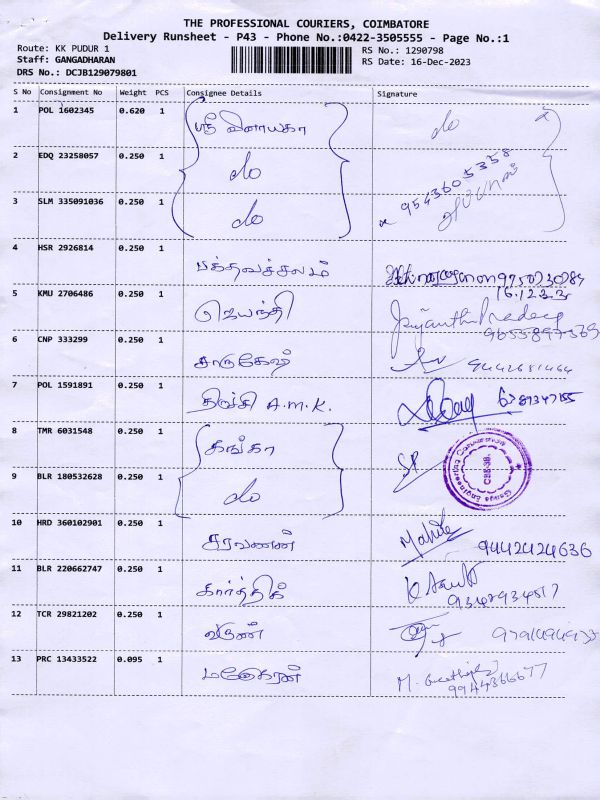 THE PROFESSIONAL COURIERS, COIMBATORE
Delivery Runsheet - P43 - Phone No.:0422-3505555 - Page No.:1
Route: KK PUDUR 1
RS No.: 1290798
Staff: GANGADHARAN
RS Date: 16-Dec-2023
DRS No.: DCJB129079801
S No Consignment No Weight PCS Consignee Details Signature
1 POL 1602345 0.620 1 ஸ்ரீ விநாயகா do
2 EDQ 23258057 0.250 1 do 9543605358
3 SLM 335091036 0.250 1 do
4 HSR 2926814 0.250 1 பக்தவச்சலம் 9750730784
16.12.23
5 KMU 2706486 0.250 1 ஜெயந்தி Jayanthi Pradeep
9655897369
6 CNP 333299 0.250 1 சாருகேஷ் 9442651464
7 POL 1591891 0.250 1 திருச்சி A.M.K.
8 TMR 6031548 0.250 1 கங்கா
9 BLR 180532628 0.250 1 do SP
10 HRD 360102901 0.250 1 சரவணன் 9442424636
11 BLR 220662747 0.250 1 கார்த்திக்
9342934517
12 TCR 29821202 0.250 1 வருண்
13 PRC 13433522 0.095 1 மனோகரன்
9944366677